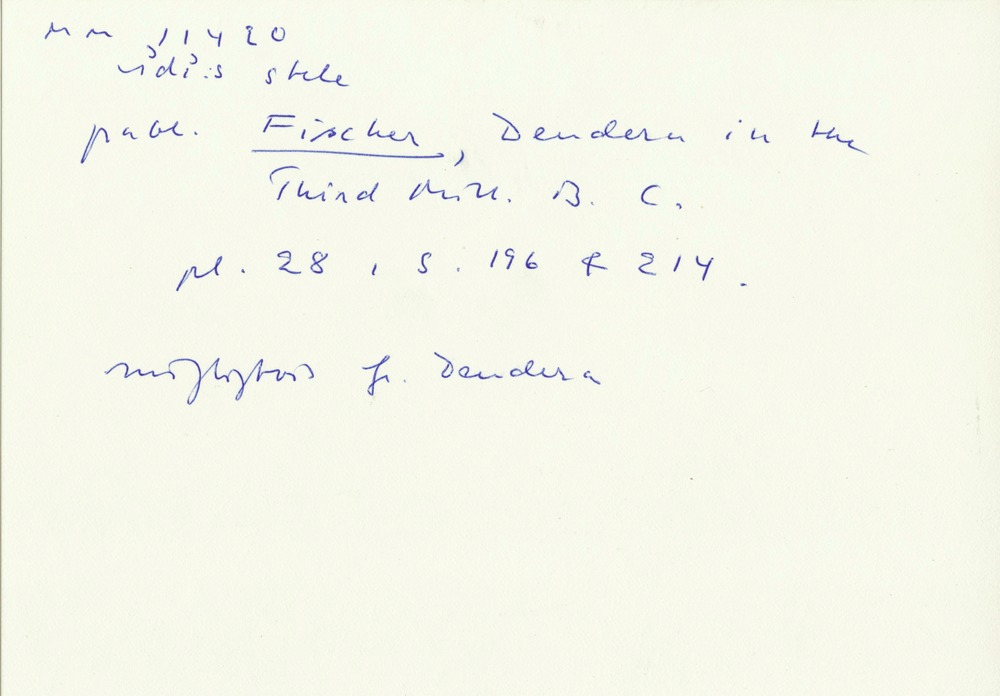 MM 11420
ı͗dı͗:s stele
publ. Fischer, Dendera in the
Third Mill. B. C.
pl. 28, s. 196 & 214.
möjligtvis fr. Dendera